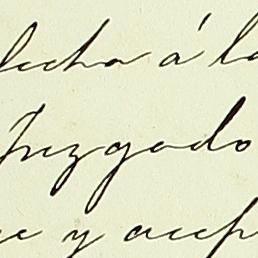 fecha á la
Juzgado
y acep